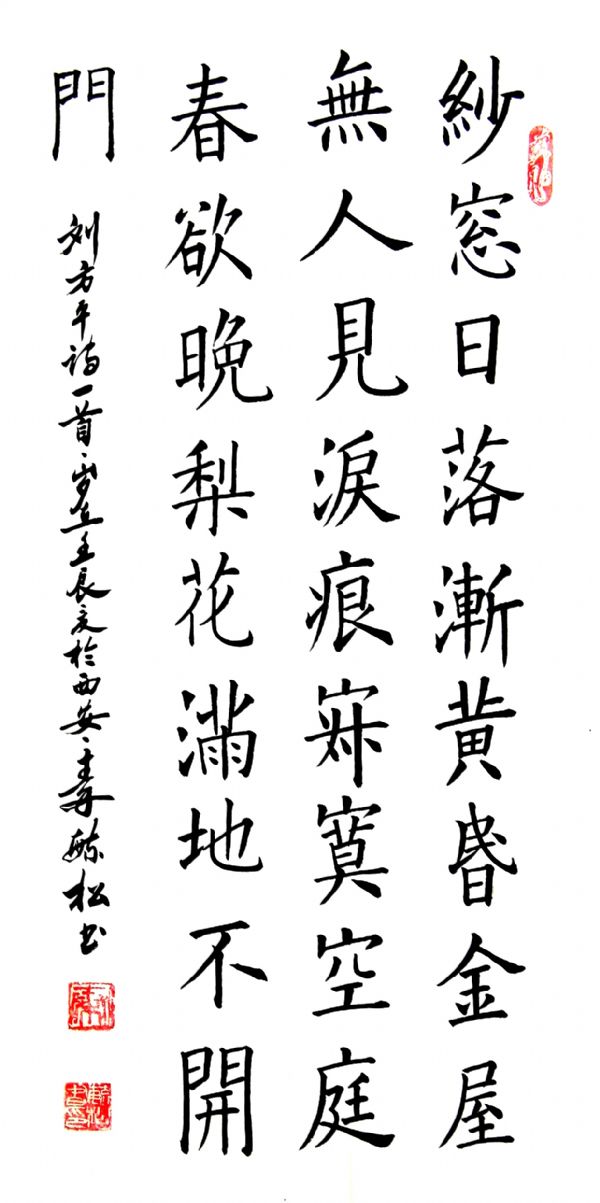 紗窓日落漸黄昬金屋
無人見淚痕寂寞空庭
春欲晚梨花滿地不開
門
刘方平詩一首岁在壬辰夏於西安毓松书